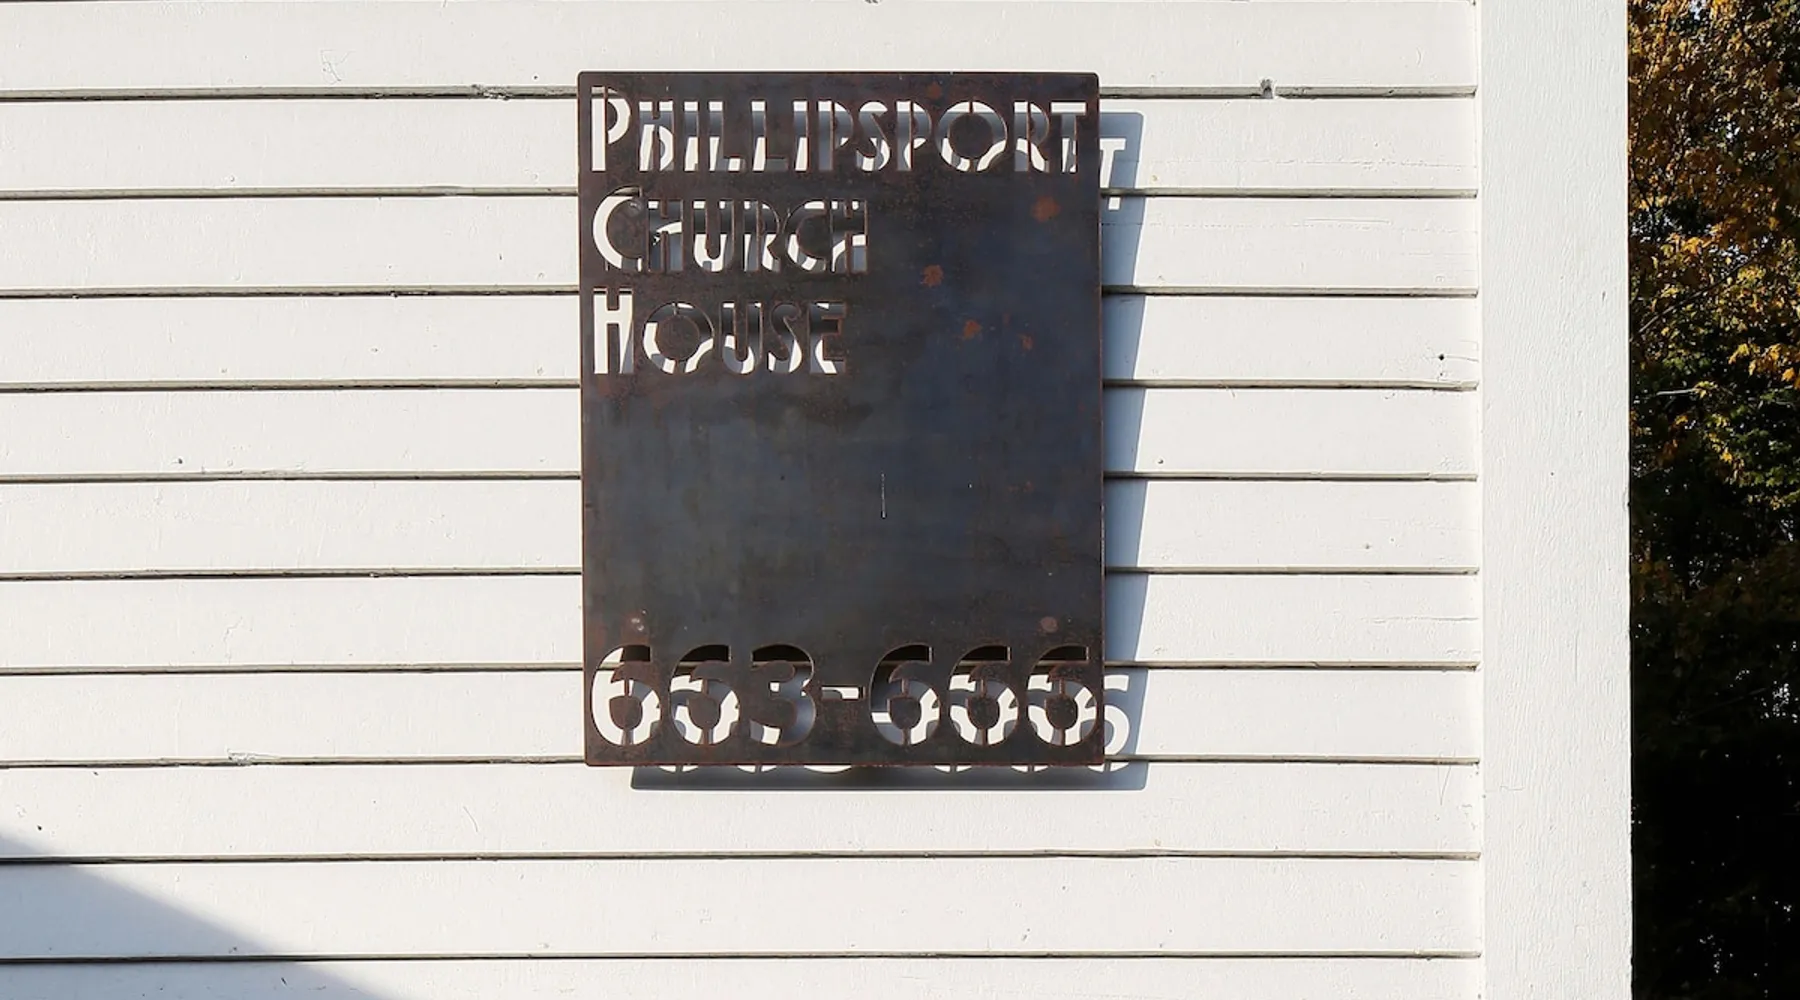 PHILLIPSPORT
CHURCH
HOUSE
663-666